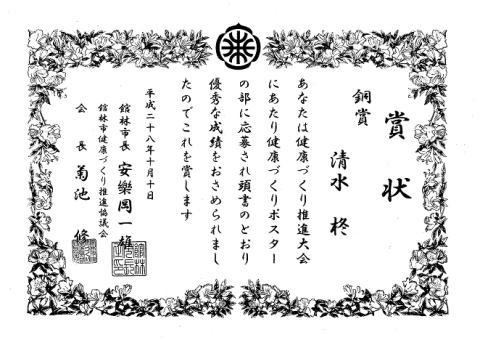 賞状
銅賞
清水 柊
あなたは健康づくり推進大会
にあたり健康づくりポスター
の部に応募され頭書のとおり
優秀な成績をおさめられまし
たのでこれを賞します
平成二十八年十月十日
館林市長 安樂岡一雄
館林市健康づくり推進協議会
会長 菊池 修